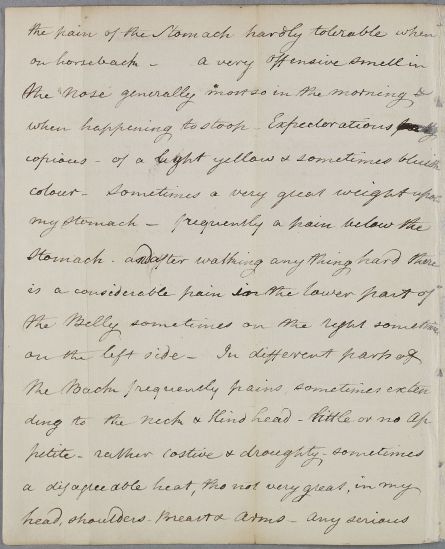 the pain of the Stomach hardly tolerable when
on horseback - a very offensive smell in
the Nose generally most so in the morning &
when happening to stoop - Expectorations
copious - of a light yellow & sometimes bluish
colour - Sometimes a very great weight upon
my Stomach - frequently a pain below the
Stomach - and after walking any thing hard there
is a considerable pain in the lower part of
the Belly sometimes on the right sometimes
on the left side - In different parts of
the Back frequently pains, sometimes exten
ding to the neck & hind head - little or no Ap
petite - rather costive & droughty, sometimes
a disagreeable heat, tho not very great, in my
head, shoulders - Breast & Arms - any serious